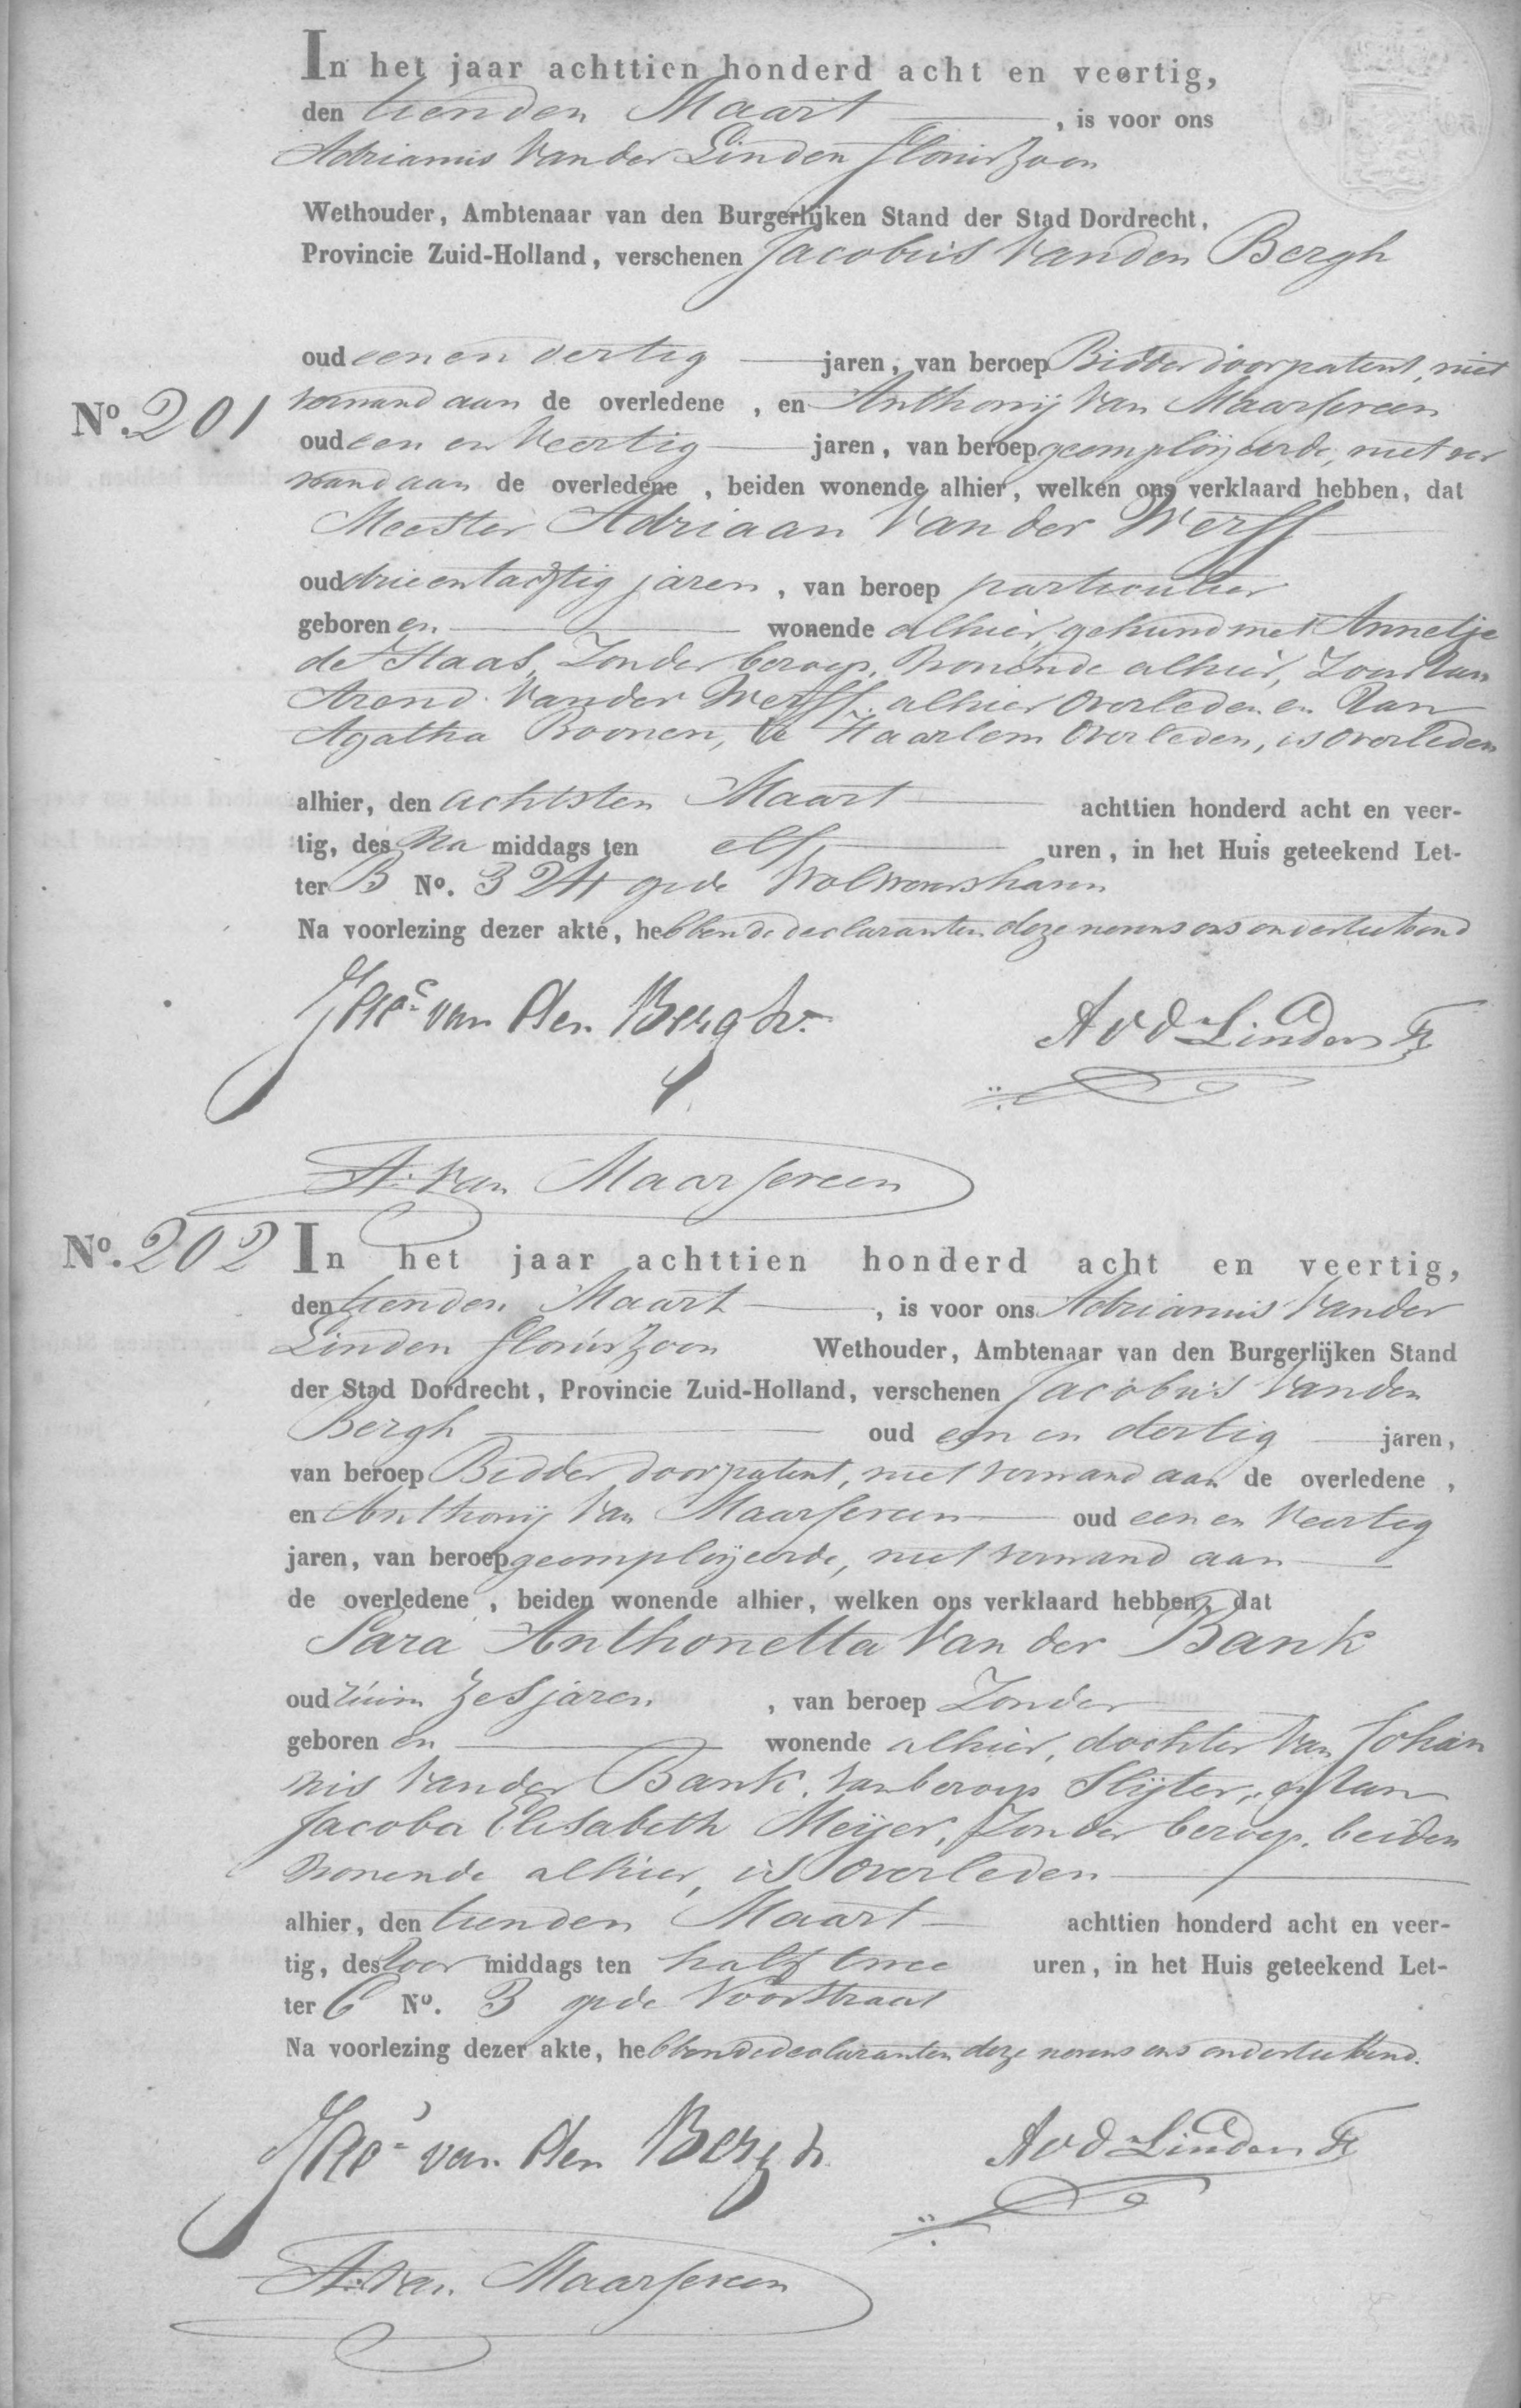 In het jaar achttien honderd acht en veertig,
den tienden Maart , is voor ons
Adrianus Van der Linden Floriszoon
Wethouder, Ambtenaar van den Burgerlijken Stand der Stad Dordrecht,
Provincie Zuid-Holland, verschenen Jacobus Van den Bergh
oud een en dertig jaren, van beroep Bidder door patent, niet
No. 201
verwand aan de overledene , en Anthonij Van Maarseveen
oud een en Veertig jaren, van beroep geemploijeerde, niet ver
wand aan de overledene , beiden wonende alhier, welken ons verklaard hebben, dat
Meester Adriaan Van der Werff
oud drie en tachtig jaren , van beroep particulier
geboren en wonende alhier, gehuwd met Annetje
de Haas, Zonder beroep, Wonende alhier, Zoon Van
Arend Van der Werff, alhier Overleden en Van
Agatha Boonen, te Haarlem Overleden, is Overleden
alhier, den achtsten Maart achttien honderd acht en veer-
tig, des Na middags ten elf uren, in het Huis geteekend Let-
ter B No. 324 op de Wolwevershaven
Na voorlezing dezer akte, hebben de declaranten deze nevens ons onderteekend
Jacs van den Bergh
A v d Linden Fz
A. Van Maarseveen
No. 202
In het jaar achttien honderd acht en veertig,
den tienden Maart , is voor ons Adrianus Van der
Linden Floriszoon Wethouder, Ambtenaar van den Burgerlijken Stand
der Stad Dordrecht, Provincie Zuid-Holland, verschenen Jacobus Van den
Bergh oud een en dertig jaren,
van beroep Bidder door patent, niet verwand aan de overledene ,
en Anthonij Van Maarseveen oud een en Veertig
jaren, van beroep geemploijeerde, niet verwand aan
de overledene , beiden wonende alhier, welken ons verklaard hebben, dat
Sara Anthonetta Van der Bank
oud ruim zes jaren , van beroep Zonder
geboren en wonende alhier, dochter Van Johan
nis Van der Bank, van beroep Slijter, en Van
Jacoba Elisabeth Meijer, Zonder beroep, beiden
Wonende alhier, is Overleden
alhier, den tienden Maart achttien honderd acht en veer-
tig, des Voor middags ten half twee uren, in het Huis geteekend Let-
ter C No. 3 op de Voorstraat
Na voorlezing dezer akte, hebben de declaranten deze nevens ons onderteekend.
Jacs van den Bergh
A v d Linden Fz
A. Van Maarseveen